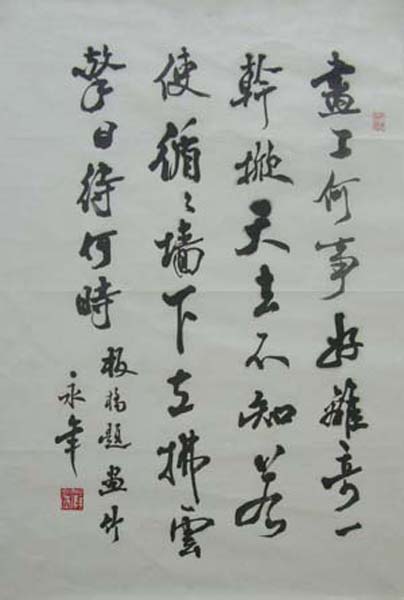 畫工何事好離奇一
幹掀天去不知若
使循〻墙下立拂雲
擎日待何時
板橋題畫竹
永年